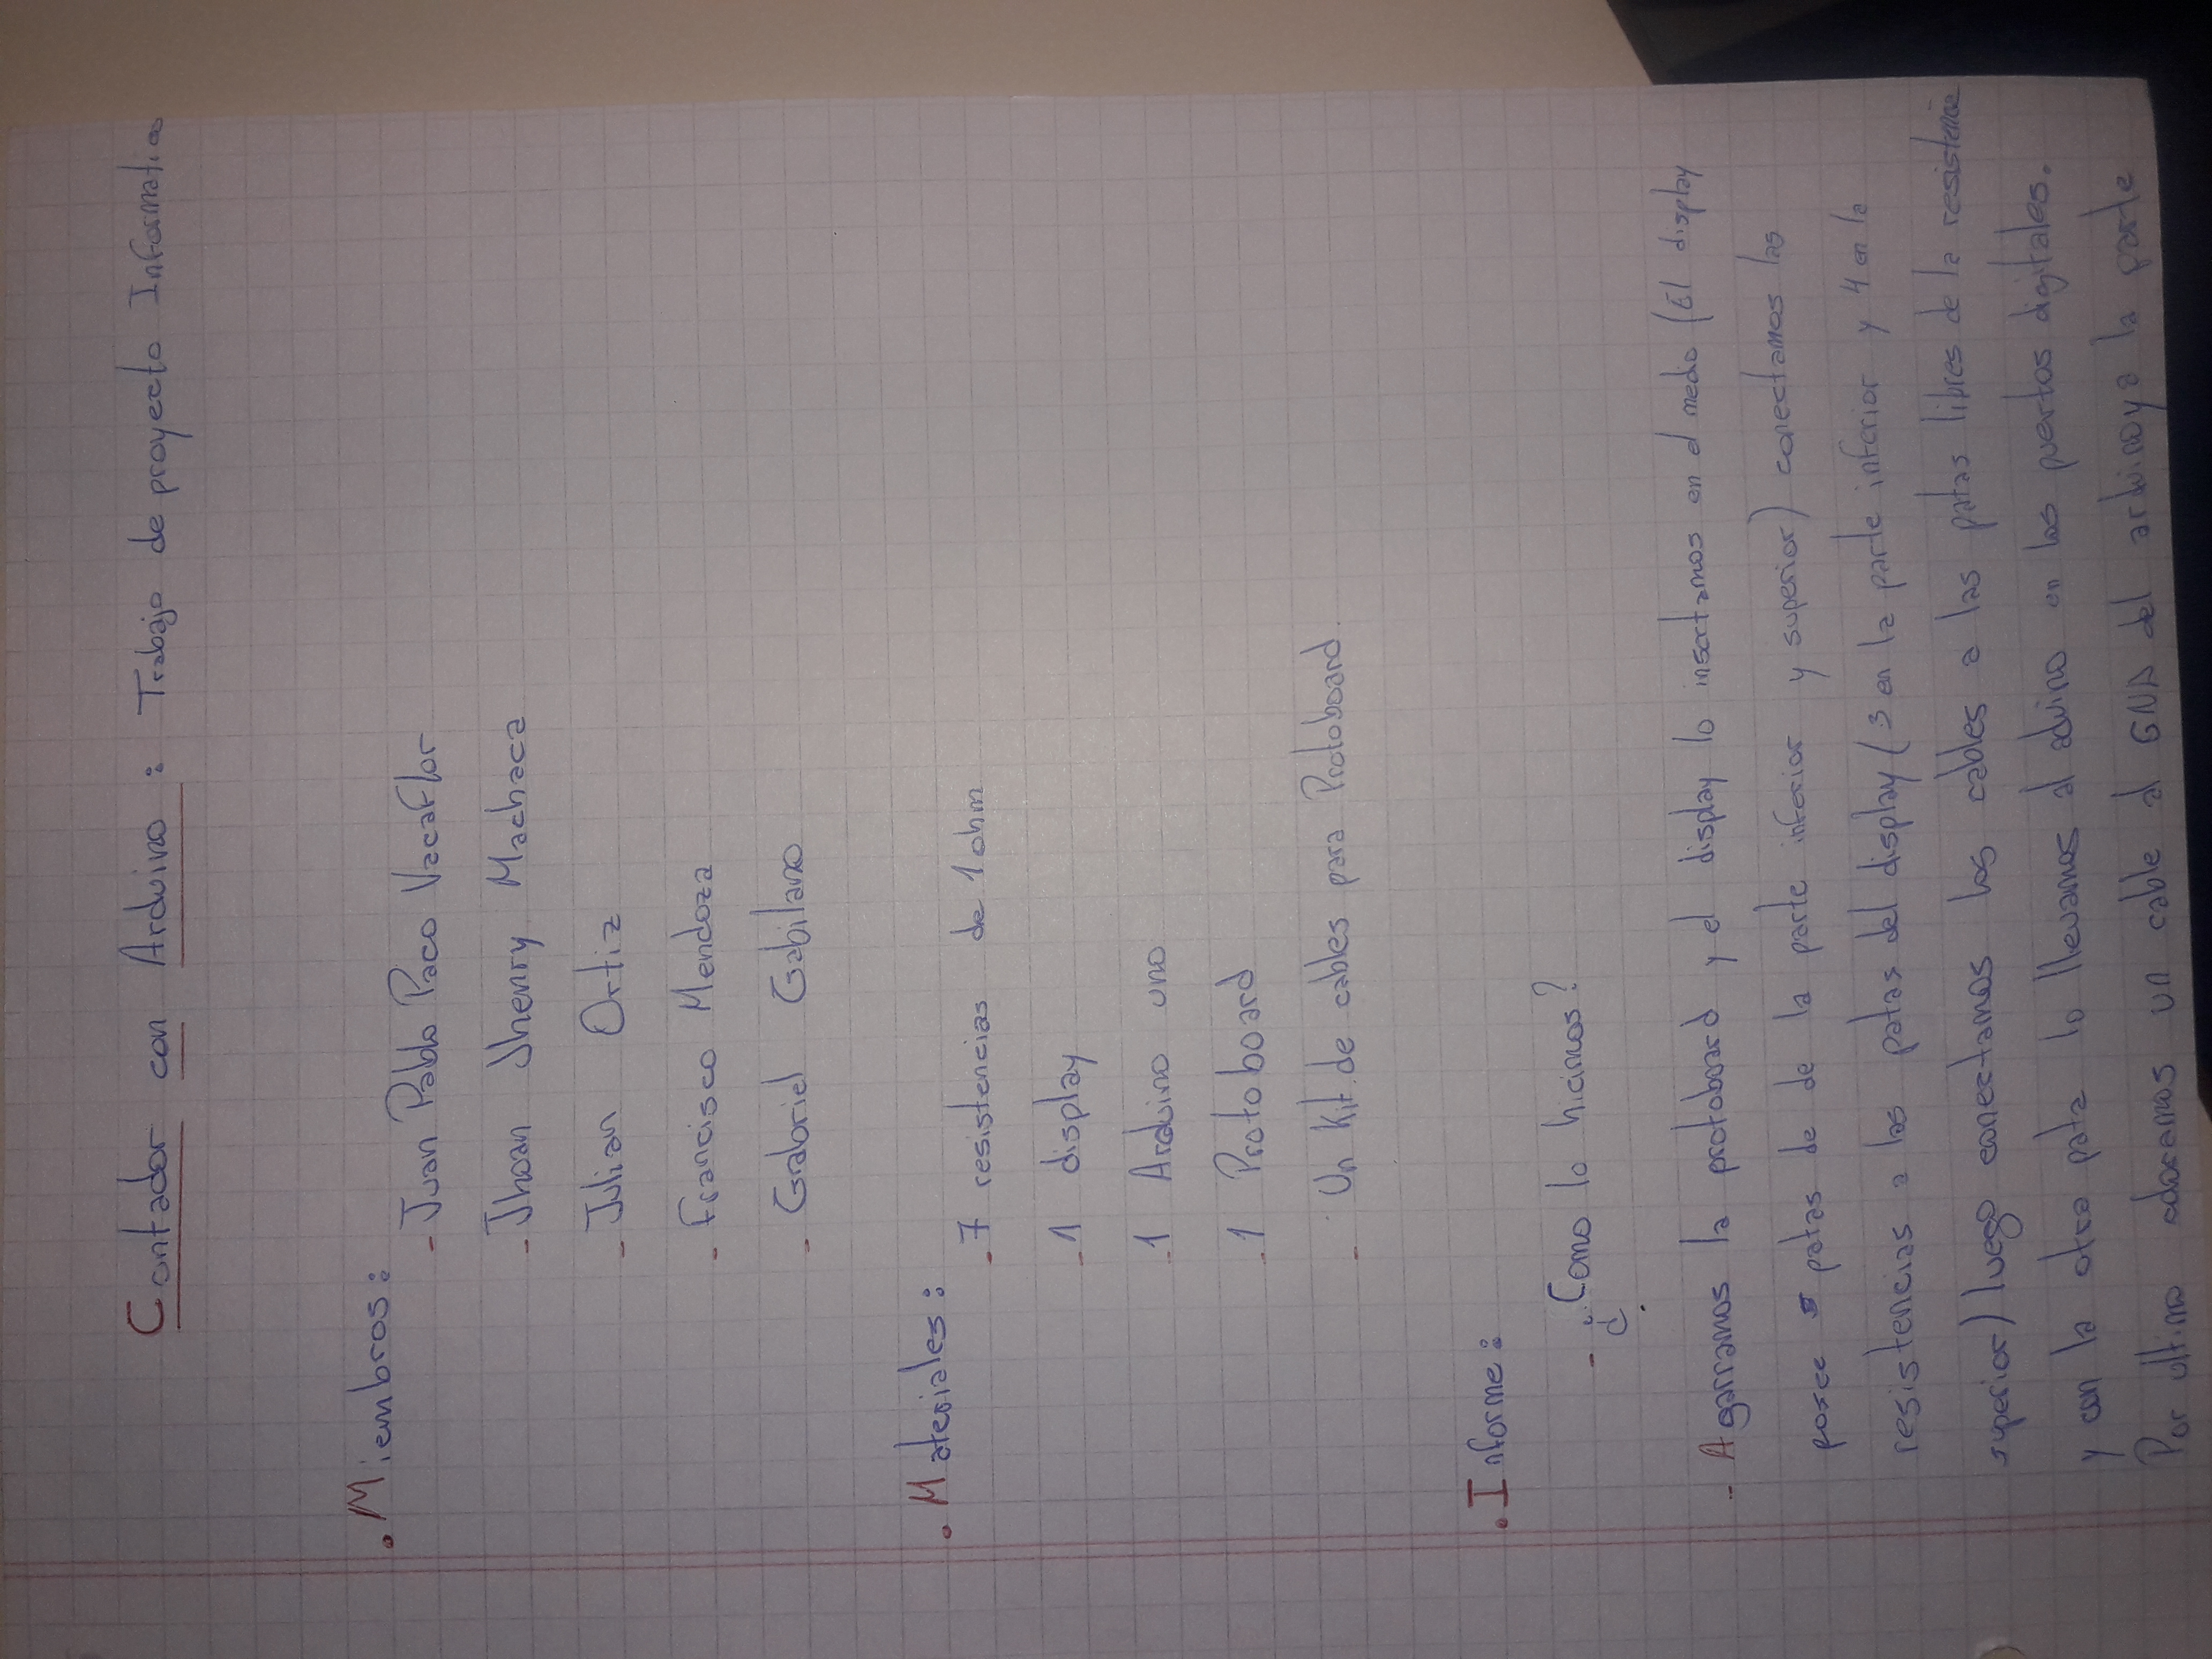 Contador con Arduino : Trabajo de proyecto Informatico
. Miembros :
- Juan Pablo Paco Vacaflor
- Jhoan Jhenry Machaca
- Julian Ortiz
- Francisco Mendoza
- Gabriel Gabilano
. Materiales :
- 7 resistencias de 1 ohm
- 1 display
- 1 Arduino uno
- 1 Protoboard
- Un Kit de cables para Protoboard.
. Informe :
- ¿Como lo hicimos?
¿
- Agarramos la protoboard y el display lo insertamos en el medio (El display
posee 5 patas de de la parte inferior y superior) conectamos las
resistencias a las patas del display (3 en la parte inferior y 4 en la
superior) luego conectamos los cables a las patas libres de la resistencia
y con la otra pata lo llevamos al aduino en los puertos digitales.
Por ultimo colocamos un cable al GND del arduino y a la parte